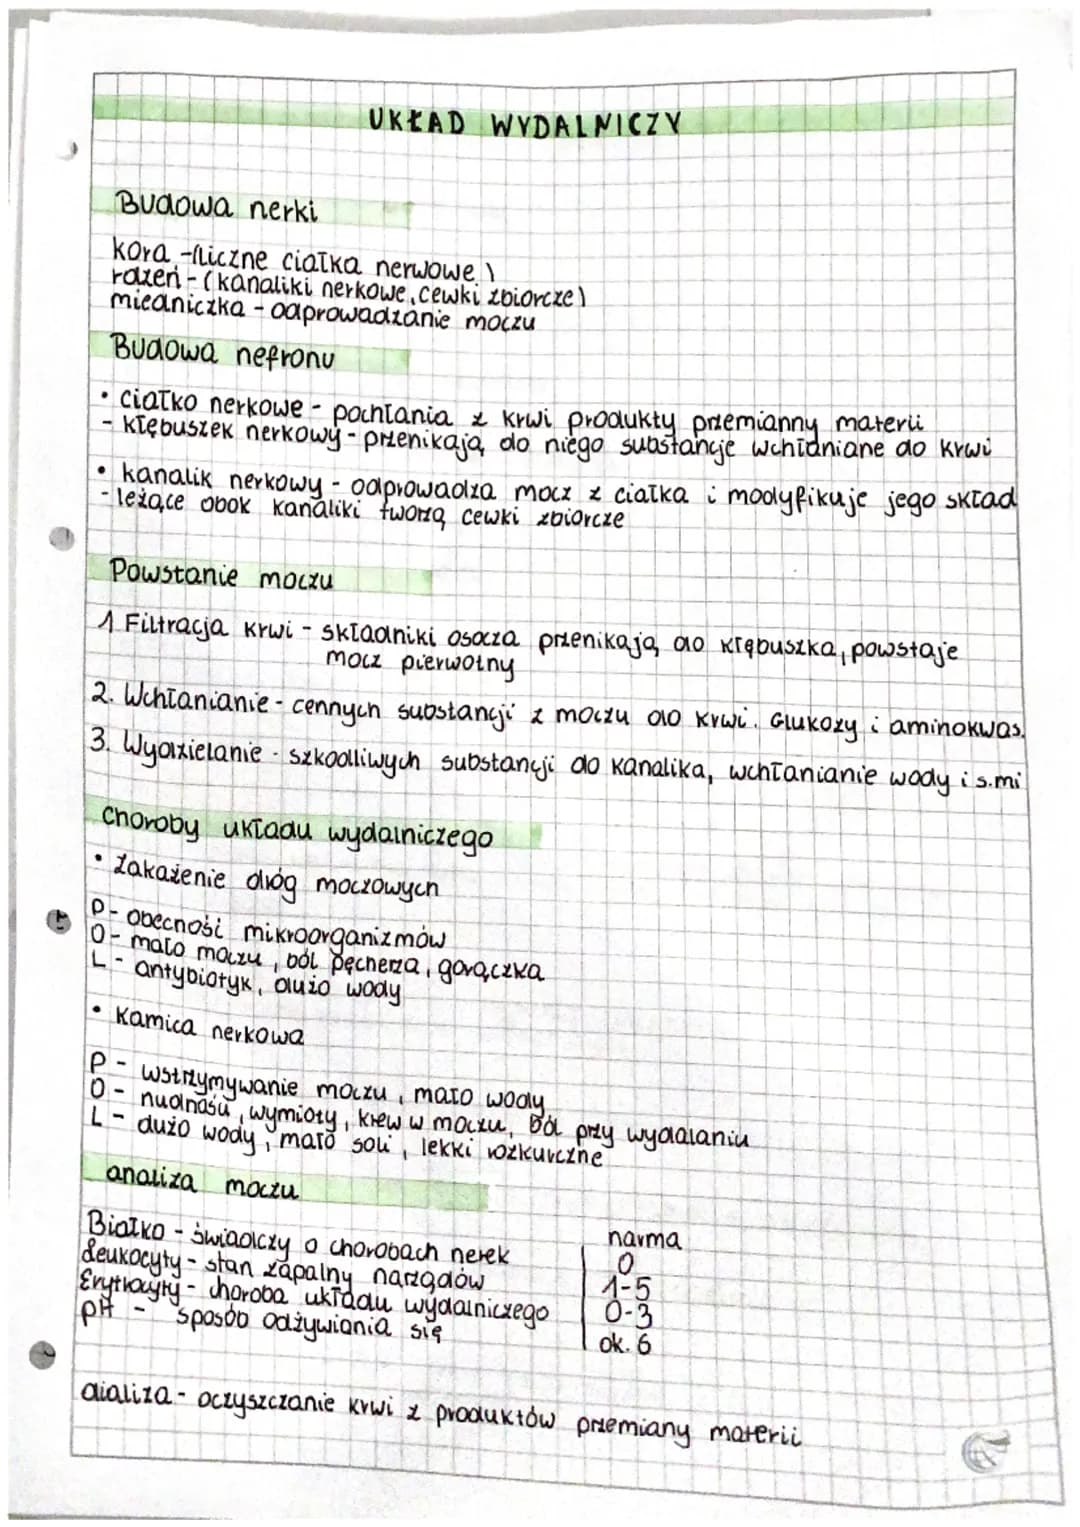 UKŁAD WYDALNICZY
Budowa nerki
kora - (liczne ciałka nerwowe)
rdzeń - (kanaliki nerkowe, cewki zbiorcze)
miedniczka - odprowadzanie moczu
Budowa nefronu
• ciałko nerkowe - pochłania z krwi produkty przemianny materii
- kłębuszek nerkowy - przenikają do niego substancje wchłaniane do krwi
• kanalik nerkowy - odprowadza mocz z ciałka i modyfikuje jego skład
- leżące obok kanaliki tworzą cewki zbiorcze
Powstanie moczu
1 Filtracja krwi - składniki osocza przenikają do kłębuszka, powstaje
mocz pierwotny
2. Wchłanianie - cennych substancji z moczu do krwi. Glukozy i aminokwas.
3. Wydzielanie - szkodliwych substancji do kanalika, wchłanianie wody i s.mi
Choroby układu wydalniczego
• Zakażenie dróg moczowych
P - obecność mikroorganizmów
O - mało moczu, ból pęcherza, gorączka
L - antybiotyk, dużo wody
• Kamica nerkowa
P - wstrzymywanie moczu, mało wody
O - nudności, wymioty, krew w moczu, ból przy wydalaniu
L - dużo wody, mało soli, lekki rozkurczne
analiza moczu
Białko - świadczy o chorobach nerek
Leukocyty - stan zapalny narządów
Erytrocyty - choroba układu wydalniczego
pH - sposób odżywiania się
norma
0
1-5
0-3
ok. 6
dializa - oczyszczanie krwi z produktów przemiany materii